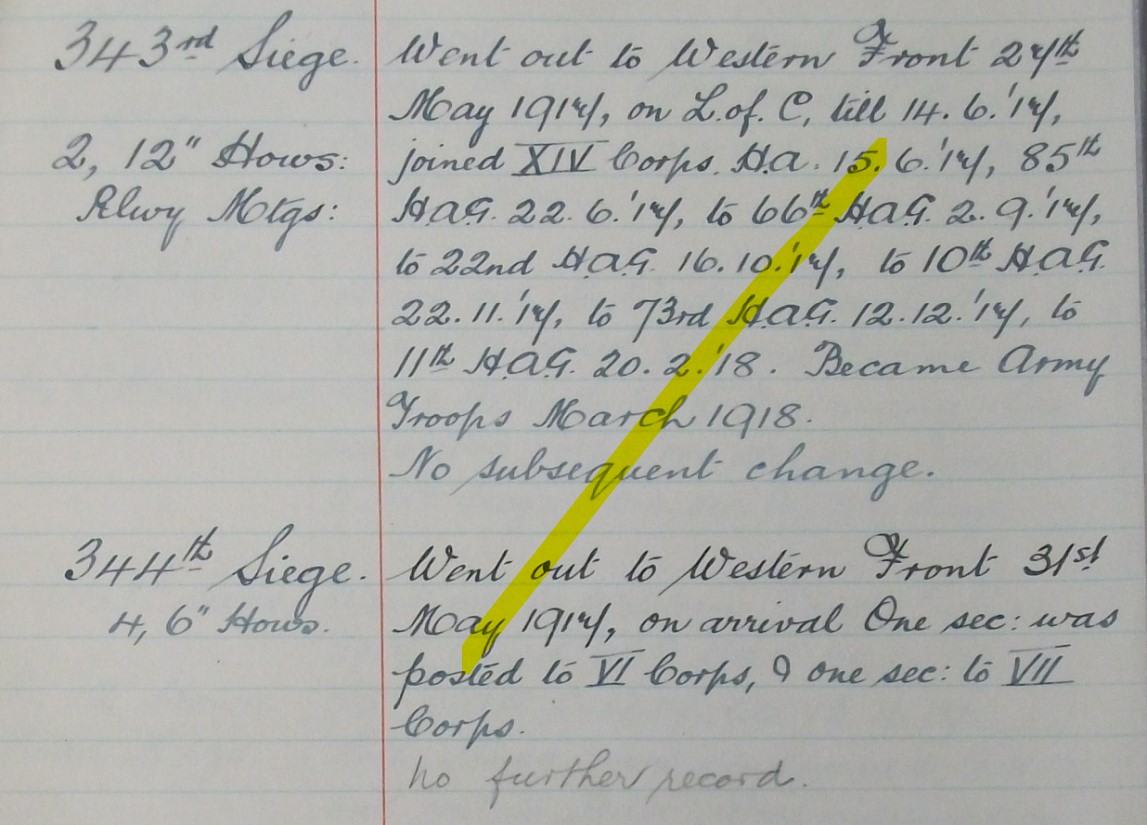 343rd Siege. Went out to Western Front 27th
May 1917, on L. of. C, till 14. 6. '17,
2, 12" Hows: joined XIV Corps. H.a. 15. 6. '17, 85th
Rlwy Mtgs: H.a.G. 22. 6. '17, to 66th H.a.G. 2. 9. '17,
to 22nd H.a.G. 16. 10. '17, to 10th H.a.G.
22. 11. '17, to 73rd H.a.G. 12. 12. '17, to
11th H.a.G. 20. 2. '18. Became Army
Troops March 1918.
No subsequent change.
344th Siege. Went out to Western Front 31st
4, 6" Hows. May 1917, on arrival One sec: was
posted to VI Corps, & one sec: to VII
Corps.
no further record.